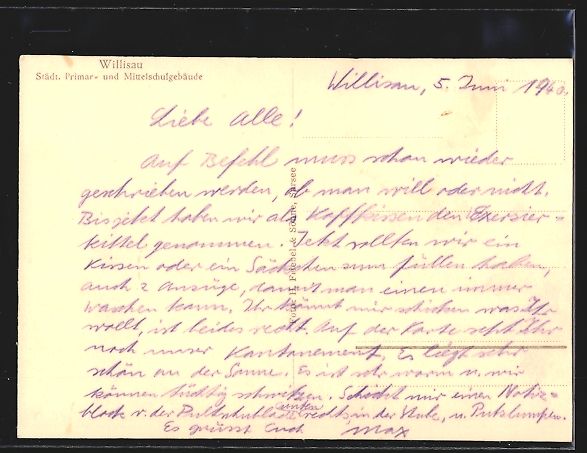 Willisau
Städt. Primar- und Mittelschulgebäude
Willisau, 5. Juni 1940.
Liebe Alle!
Auf Befehl muss schon wieder
geschrieben werden, ob man will oder nicht.
Bis jetzt haben wir als Kopfkissen den Exerzier-
kittel genommen. Jetzt sollten wir ein
Kissen oder ein Säckchen zum füllen haben,
auch 2 Anzüge, damit man einen immer
waschen kann. Ihr könnt mir schicken was Ihr
wollt, ist beides recht. Auf der Karte seht Ihr
noch unser Kantonement. Es liegt sehr
schön an der Sonne. Es ist sehr warm u. wir
können tüchtig schwitzen. Schickt mir einen Notiz-
block v. der unten rechts, in der Stube, u. Putzlumpen.
Es grüsst Euch Max